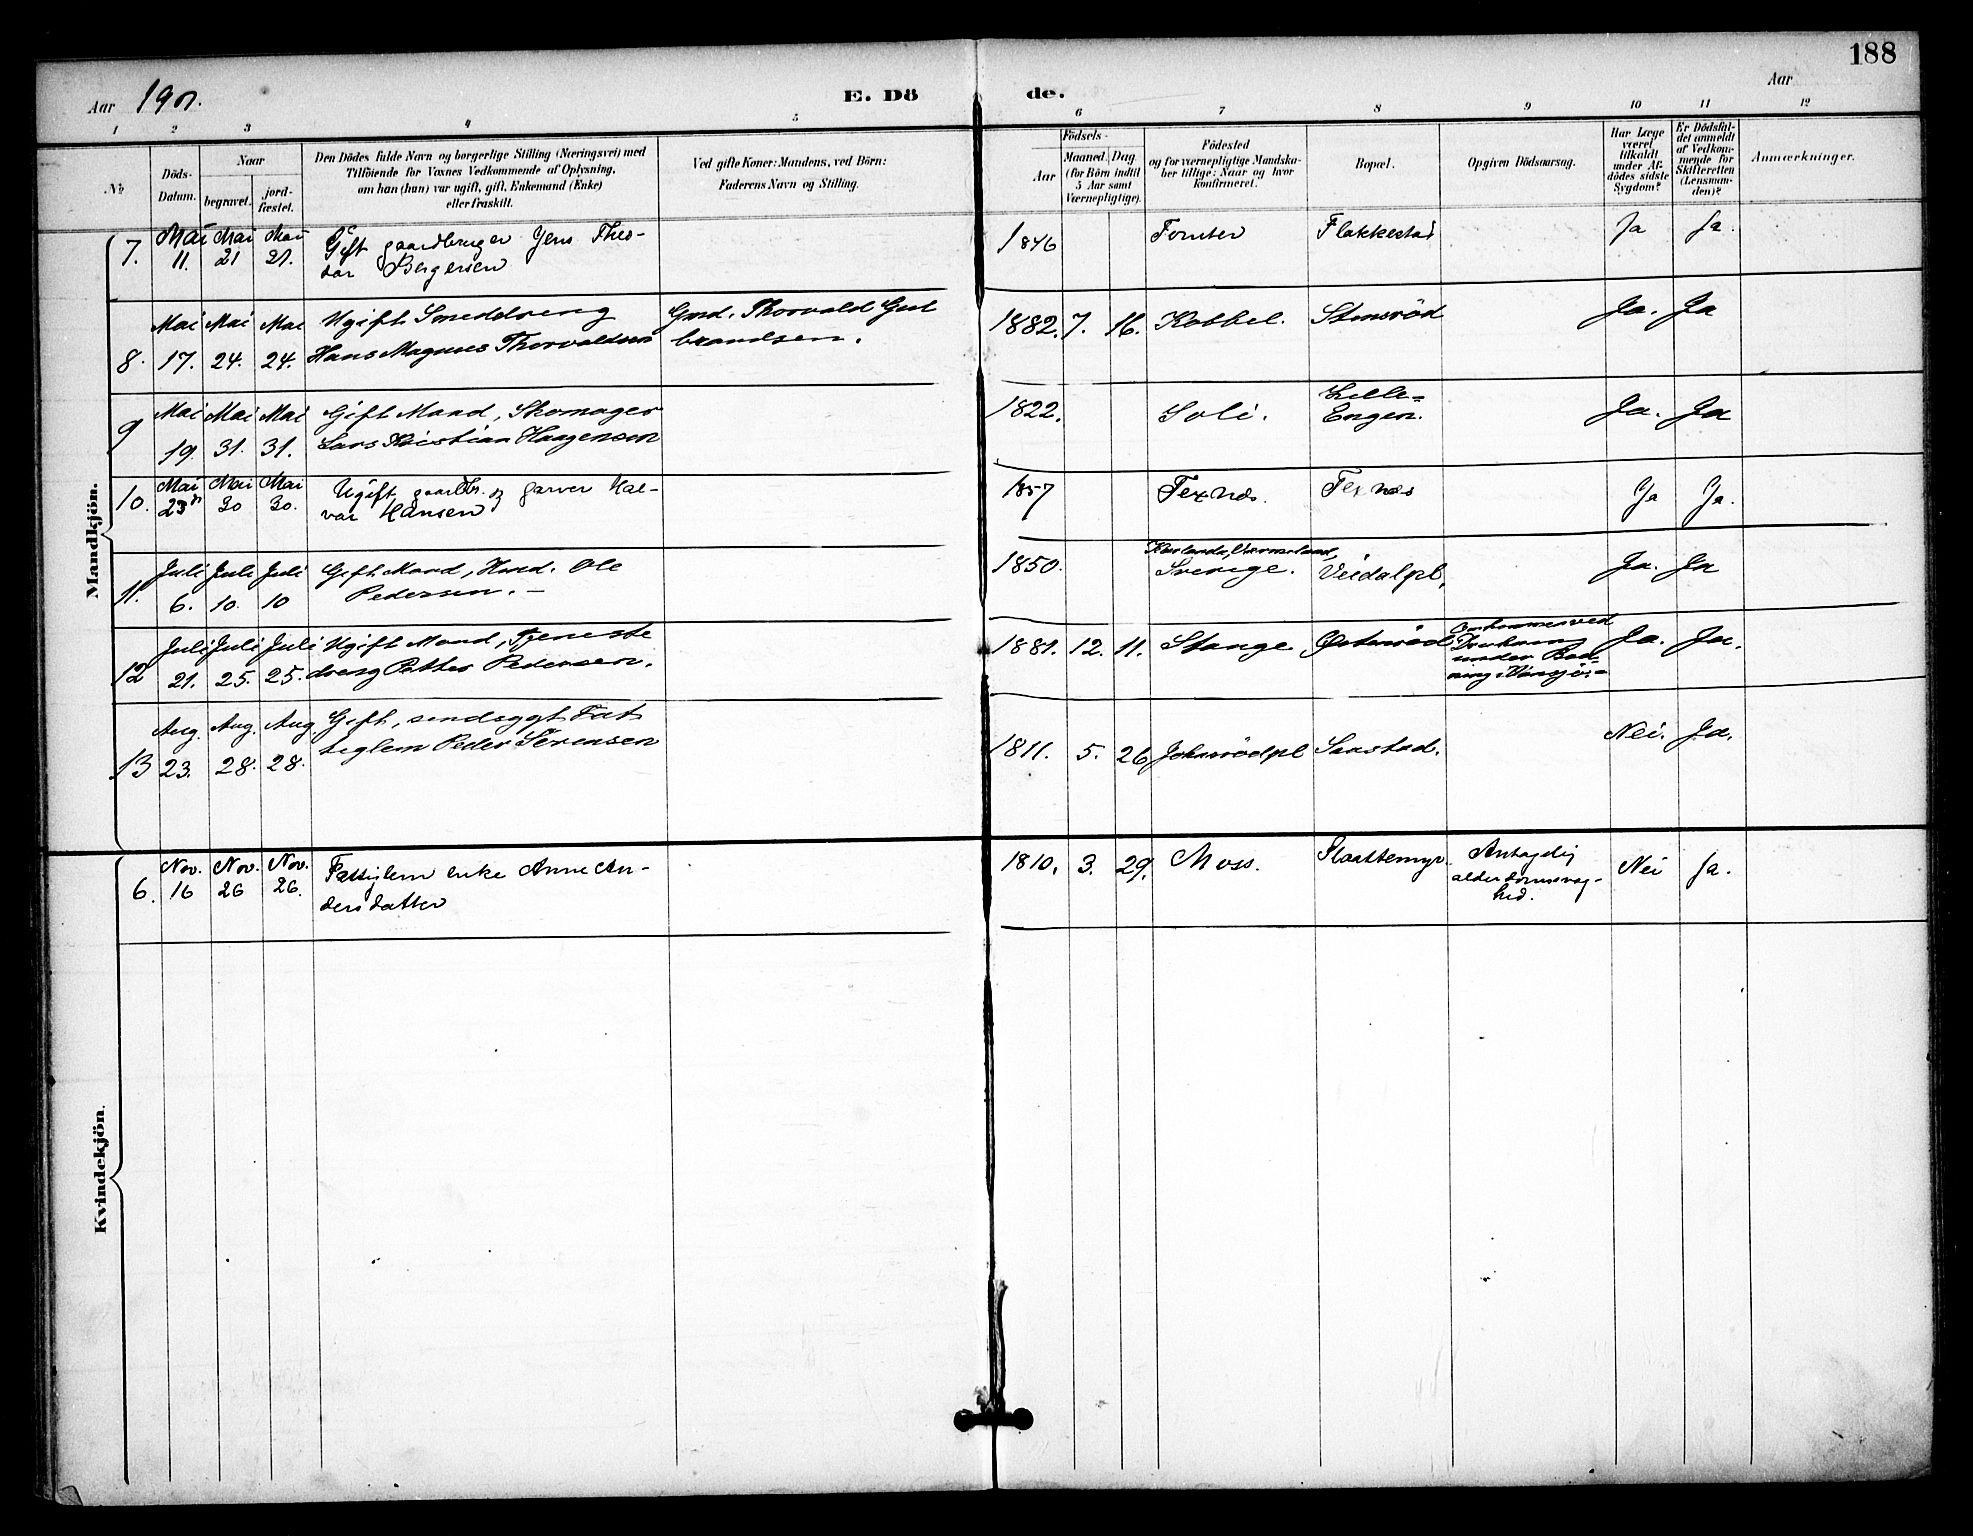 188
Aar 1901.
E. Dö
de.
Aar
1 2 3 4 5 6 7 8 9 10 11 12
No
Döds-
Datum.
Naar
begravet.
jord-
fæstet.
Den Dödes fulde Navn og borgerlige Stilling (Næringsvei) med
Tilföiende for Voxnes Vedkommende af Oplysning,
om han (hun) var ugift, gift, Enkemand (Enke)
eller fraskilt.
Ved gifte Koner: Mandens, ved Börn:
Faderens Navn og Stilling.
Födsels-
Aar
Maaned. Dag
(for Börn indtil
5 Aar samt
Værnepligtige).
Födested
og for værnepligtige Mandska-
ber tillige: Naar og hvor
konfirmeret.
Bopæl.
Opgiven Dödsaarsag.
Har Læge
været
tilkaldt
under Af-
dödes sidste
Sygdom?
Er Dödsfal-
det anmeldt
af Vedkom-
mende for
Skifteretten
(Lensman-
den)?
Anmærkninger.
Mandkjön.
7. Mai 11. Mai 21 Mai 21. Gift gaardbruger Jens Theo-
dor Bergersen
1846 Tomter Flakkestad Ja Ja.
8. Mai 17. Mai 24. Mai 24. Ugift Smeddreng
Hans Magnus Thorvaldsen
Gmd. Thorvald Gul
brandsen.
1882. 7. 16. Kobbel. Stensröd Ja. Ja
9 Mai 19. Mai 31. Mai 31. Gift Mand, Skomager
Lars Kristian Haagensen
1822. Soli. Lille-
Engen. Ja. Ja
10. Mai 23de Mai 30 Mai 30. Ugift gaardbr. og garver Hal-
var Hansen
1857 Texnæs. Texnæs Ja Ja.
11. Juli 6. Juli 10. Juli 10 Gift Mand, Hmd. Ole
Pedersen. -
1850. Værmeland,
Sverige. Veidalpl. Ja. Ja
12 Juli 21. Juli 25. Juli 25. Ugift Mand, Tjeneste
dreng Petter Pedersen.
1881. 12. 11. Stange Østeröd Omkommer ved
Drukning
under Bad-
ning i Vansjö. Ja. Ja.
13 Aug. 23. Aug. 28. Aug 28. Gift, sindsygt Fat
tiglem Peder Sörensen
1811. 5. 26 Saastad. Nei. Ja.
Kvindekjön.
6. Nov. 16 Nov. 26 Nov. 26. Fattiglem enke Anne An-
dersdatter
1810. 3. 29. Moss. Slaattemyr. Antagelig
alderdomssvag-
hed. Nei Ja.